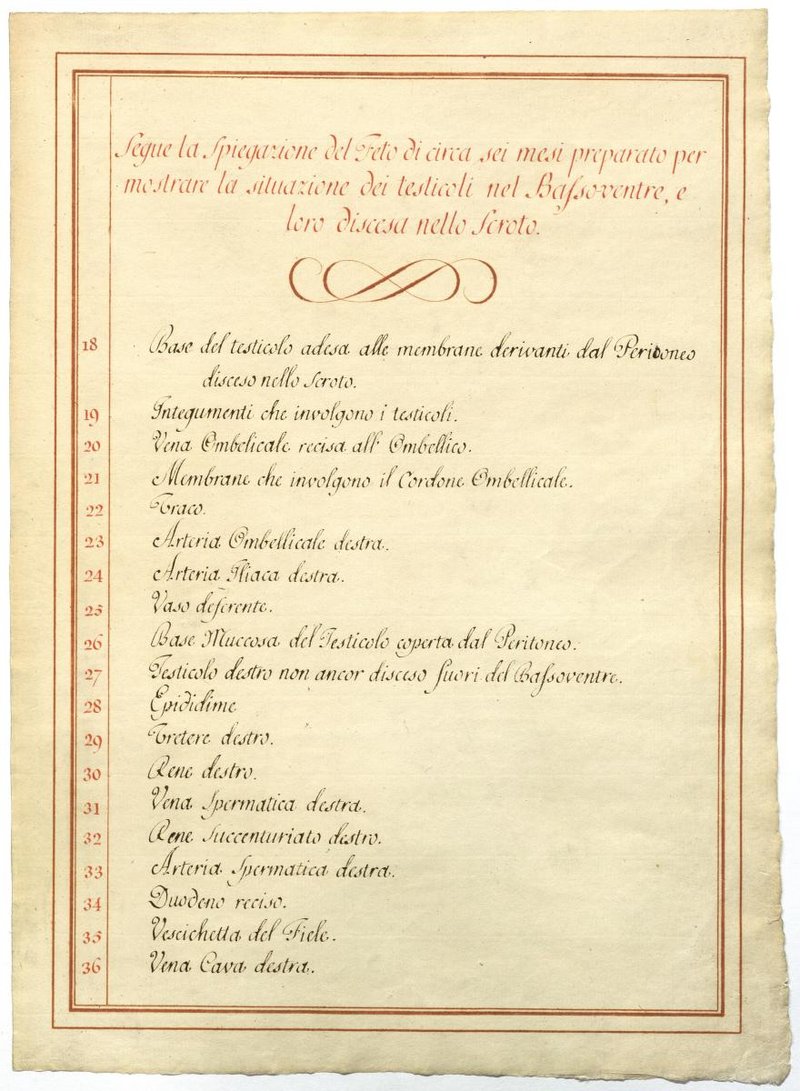 Segue la Spiegazione del Feto di circa sei mesi preparato per
mostrare la situazione dei testicoli nel Bassoventre, e
loro discesa nello Scroto.
18 Base del testicolo adesa alle membrane derivanti dal Peritoneo
disceso nello Scroto.
19 Integumenti che involgono i testicoli.
20 Vena Ombelicale recisa all' Ombellico.
21 Membrane che involgono il Cordone Ombellicale.
22 Uraco.
23 Arteria Ombellicale destra.
24 Arteria Iliaca destra.
25 Vaso deferente.
26 Base Muccosa del Testicolo coperta dal Peritoneo.
27 Testicolo destro non ancor disceso fuori del Bassoventre.
28 Epididime
29 Uretere destro.
30 Rene destro.
31 Vena Spermatica destra.
32 Rene Succenturiato destro.
33 Arteria Spermatica destra.
34 Duodeno reciso.
35 Vescichetta del Fiele.
36 Vena Cava destra.